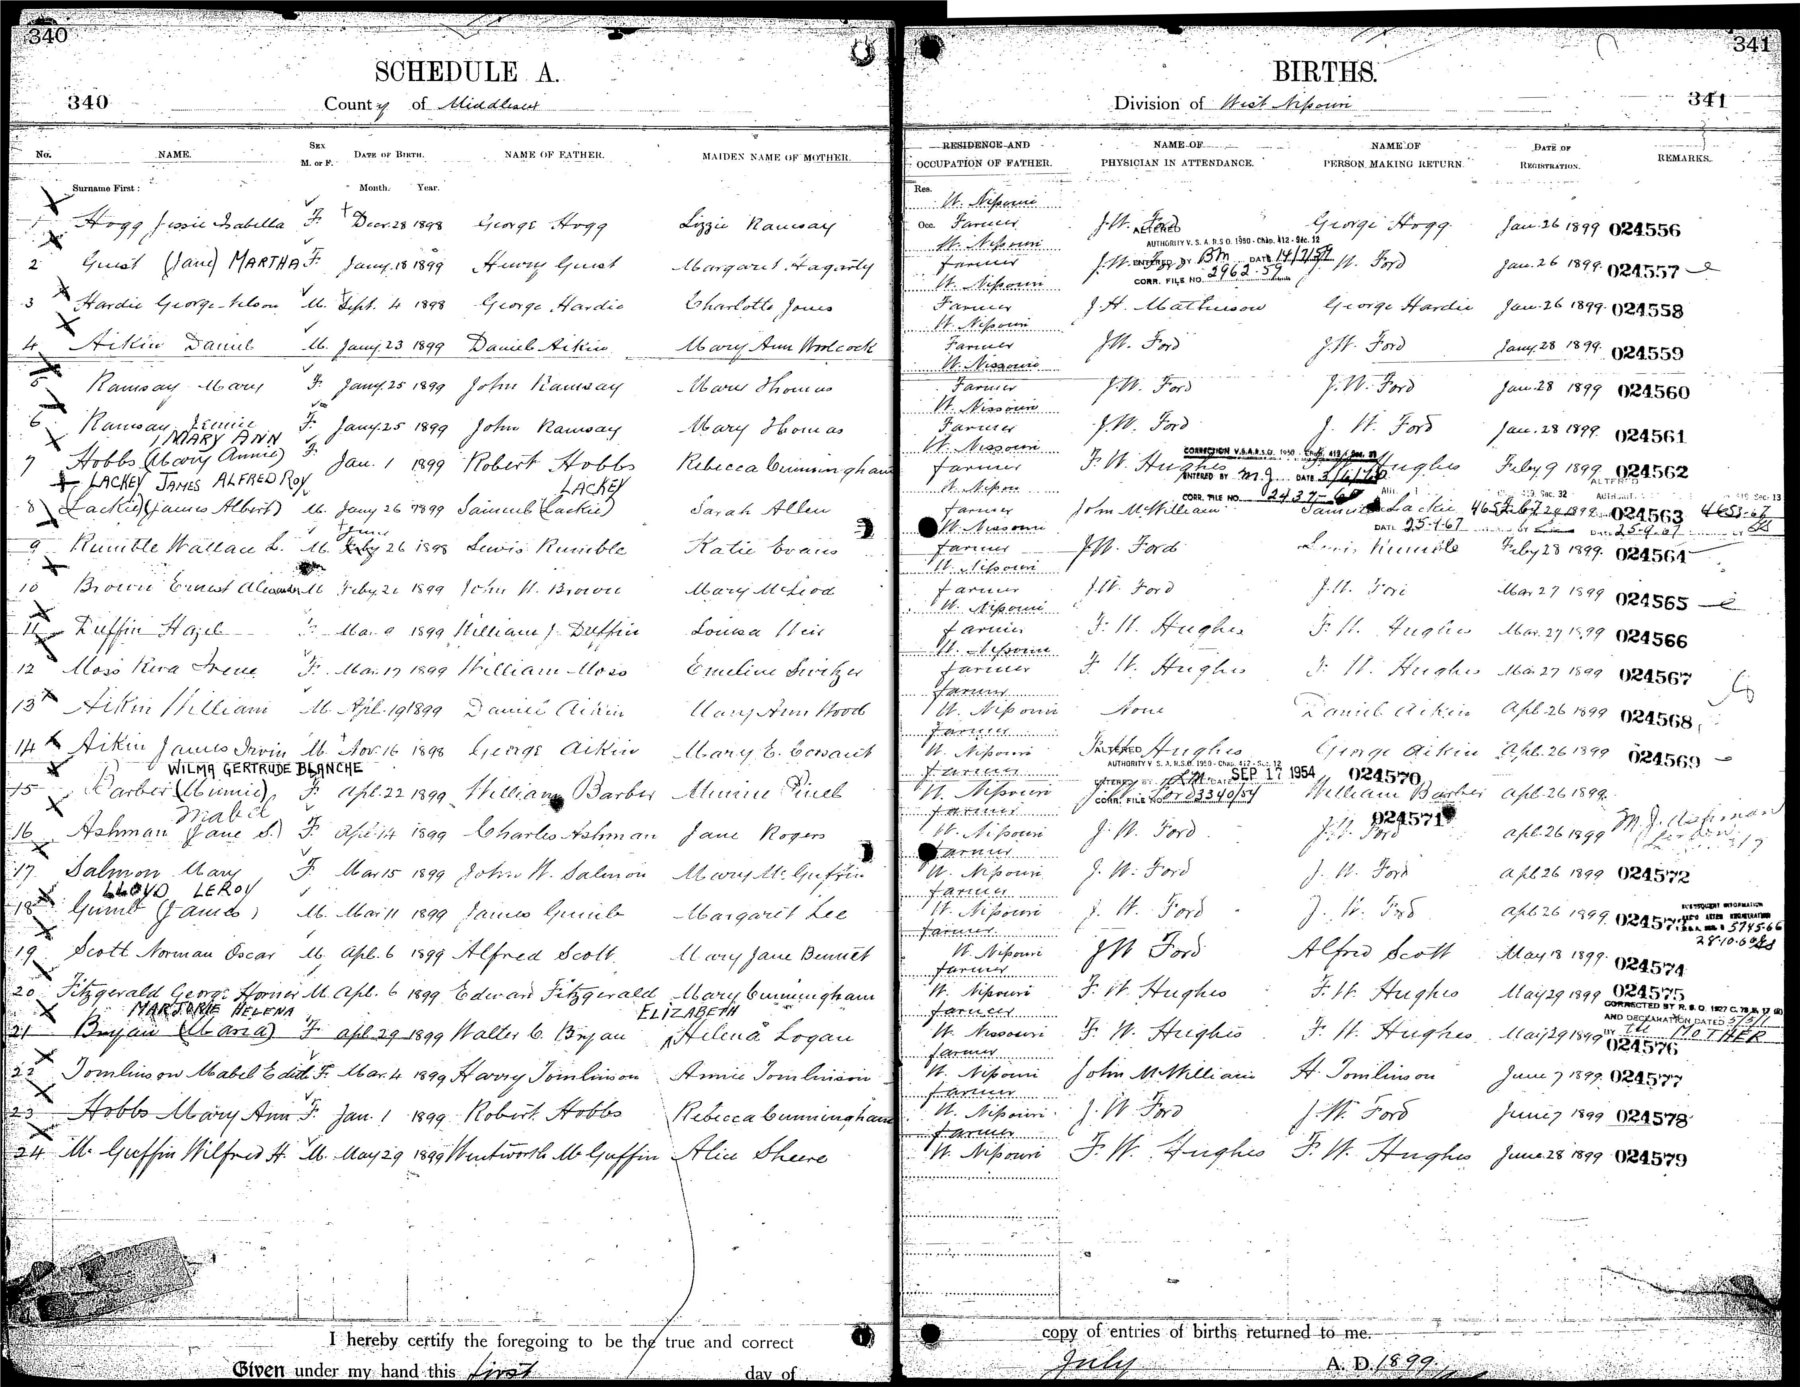 340
SCHEDULE A.
340
County of Middlesex
No. NAME. SEX M. or F. DATE OF BIRTH. NAME OF FATHER. MAIDEN NAME OF MOTHER.
Surname First: Month. Year.
1 Hogg Jessie Isabella F. Decr. 28 1898 George Hogg Lizzie Ramsay
2 Guest (Jane) MARTHA F. Jany. 18 1899 Henry Guest Margaret Hagarty
3 Hardie George Nelson M. Sept. 4 1898 George Hardie Charlotte Jones
4 Aikin Daniel M. Jany. 23 1899 Daniel Aikin Mary Ann Woolcock
5 Ramsay Mary F. Jany. 25 1899 John Ramsay Mary Thomas
6 Ramsay Jennie F. Jany. 25 1899 John Ramsay Mary Thomas
MARY ANN
7 Hobbs (Mary Annie) F. Jan. 1 1899 Robert Hobbs Rebecca Cunningham
LACKEY JAMES ALFRED ROY LACKEY
8 (Lackie) (James Albert) M. Jany 26 1899 Samuel (Lackie) Sarah Allen
June
9 Rumble Wallace L. M. Feby 26 1898 Lewis Rumble Katie Evans
10 Brown Ernest Alexander M. Feby. 21 1899 John H. Brown Mary McLeod
11 Duffin Hazel F. Mar. 9 1899 William J. Duffin Louisa Weir
12 Moss Reva Irene F. Mar. 17 1899 William Moss Emeline Switzer
13 Aikin William M. Apl. 19 1899 Daniel Aikin Mary Ann Wood
14 Aikin James Irvin M. Nov. 16 1898 George Aikin Mary E.
WILMA GERTRUDE BLANCHE
15 Barber (Minnie) F. Apl. 22 1899 William Barber Minnie
Mabel
16 Ashman (Jane S.) F. Apl. 14 1899 Charles Ashman Jane Rogers
17 Salmon Mary F. Mar 15 1899 John W. Salmon Mary McGuffin
LLOYD LEROY
18 Gumb (James) M. Mar 11 1899 James Gumb Margaret Lee
19 Scott Norman Oscar M. Apl. 6 1899 Alfred Scott Mary Jane Bennett
20 Fitzgerald George Horner M. Apl. 6 1899 Edward Fitzgerald Mary Cunningham
MARJORIE HELENA ELIZABETH
21 Bryan (Maria) F. Apl. 29 1899 Walter C. Bryan Helena Logan
22 Tomlinson Mabel Edith F. Mar. 4 1899 Harry Tomlinson Annie Tomlinson
23 Hobbs Mary Ann F. Jan. 1 1899 Robert Hobbs Rebecca Cunningham
24 McGuffin Wilfred H. M. May 29 1899 Wentworth McGuffin Alice Sheere
I hereby certify the foregoing to be the true and correct
Given under my hand this first day of
341
BIRTHS.
Division of West Nissouri
341
RESIDENCE AND OCCUPATION OF FATHER. NAME OF PHYSICIAN IN ATTENDANCE. NAME OF PERSON MAKING RETURN. DATE OF REGISTRATION. REMARKS.
Res. W. Nissouri
Occ. Farmer J.W. Ford George Hogg Jan. 26 1899 024556
ALTERED
AUTHORITY V. S. A. R.S.O. 1950 - Chap. 412 - Sec. 12
W. Nissouri
farmer J.W. Ford ENTERED BY BM DATE 14/7/59 J. W. Ford Jan. 26 1899 024557
CORR. FILE NO. 2962-59
W. Nissouri
Farmer J. H. Mathieson George Hardie Jan. 26 1899 024558
W. Nissouri
Farmer J.W. Ford J.W. Ford Jany. 28 1899 024559
W. Nissouri
Farmer J.W. Ford J.W. Ford Jan. 28 1899 024560
W. Nissouri
Farmer J.W. Ford J. W. Ford Jan. 28 1899 024561
W. Nissouri
CORRECTION V.S.A.R.S.O. 1950 - Chap. 412
farmer F. W. Hughes F. W. Hughes Feby 9 1899 024562
ENTERED BY MJ DATE 3/6/60
ALTERED
W. Nissouri
CORR. FILE NO. 2437-60
farmer John McWilliam Samuel Lackie 024563 4653-67
DATE 25-9-67 25-9-67
W. Nissouri
farmer J.W. Ford Lewis Rumble Feby 28 1899 024564
W. Nissouri
farmer J.W. Ford J.W. Ford Mar 27 1899 024565
W. Nissouri
farmer F. W. Hughes F. W. Hughes Mar. 27 1899 024566
W. Nissouri
farmer F. W. Hughes F. W. Hughes Mar 27 1899 024567
farmer
W. Nissouri None Daniel Aikin Apl. 26 1899 024568
farmer
W. Nissouri F.W. Hughes George Aikin Apl. 26 1899 024569
ALTERED
AUTHORITY V. S. A. R.S.O. 1950 - Chap. 412 - Sec. 12
farmer
ENTERED BY LM DATE SEP 17 1954 024570
W. Nissouri J.W. Ford William Barber Apl. 26 1899
CORR. FILE NO. 3340/54
farmer
024571
W. Nissouri J. W. Ford J.W. Ford Apl. 26 1899 M. J. Ashman
farmer
W. Nissouri J. W. Ford J. W. Ford Apl 26 1899 024572
farmer
W. Nissouri J. W. Ford J. W. Ford Apl 26 1899 02457
SUBSEQUENT INFORMATION
5745-66
28-10-60
farmer
W. Nissouri J W Ford Alfred Scott May 18 1899 024574
farmer
W. Nissouri F. W. Hughes F. W. Hughes May 29 1899 024575
CORRECTED BY R.S.O. 1927 C. 78
AND DECLARATION DATED 5/5/1
BY THE MOTHER
farmer
W. Nissouri F. W. Hughes F. W. Hughes May 29 1899 024576
farmer
W. Nissouri John McWilliam H. Tomlinson June 7 1899 024577
farmer
W. Nissouri J. W Ford J. W. Ford June 7 1899 024578
farmer
W. Nissouri F. W. Hughes F. W. Hughes June 28 1899 024579
copy of entries of births returned to me.
July A. D. 1899.